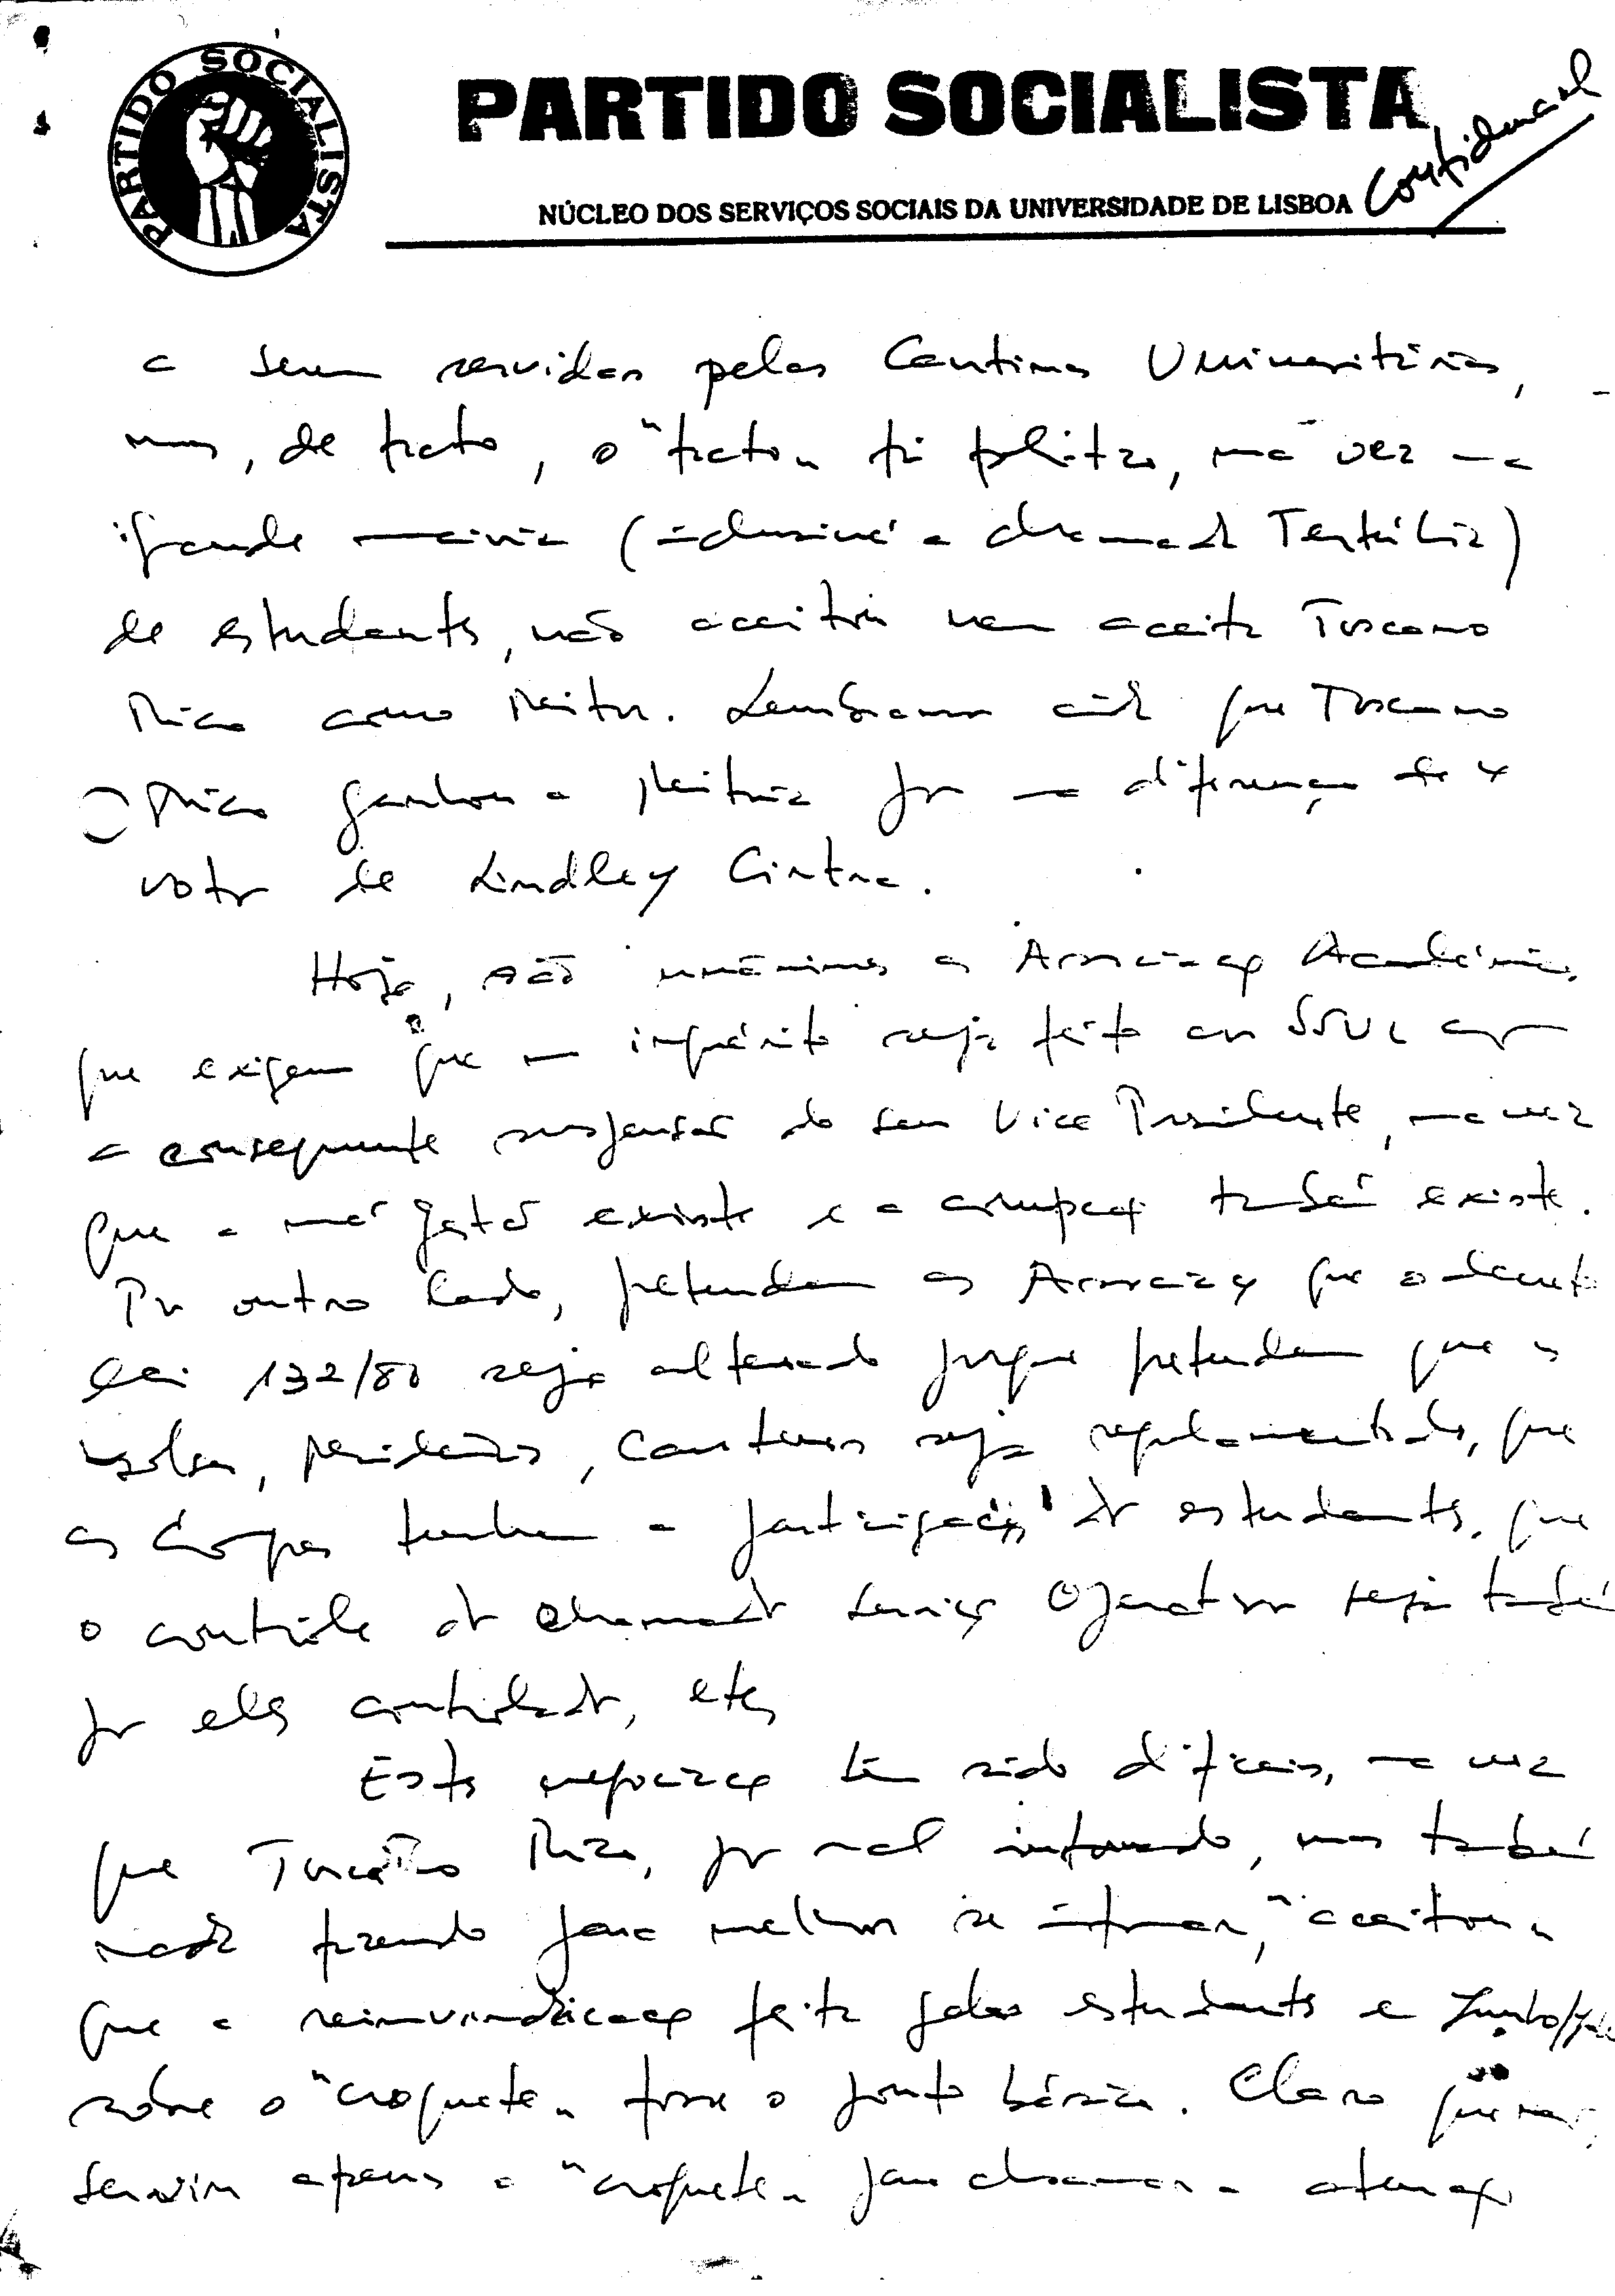 PARTIDO SOCIALISTA
PARTIDO SOCIALISTA
Confidencial
NÚCLEO DOS SERVIÇOS SOCIAIS DA UNIVERSIDADE DE LISBOA
a serem servidas pelas Cantinas Universitárias,
mas, de facto, o "facto" foi político, uma vez que a
grande maioria (inclusivé a chamada Tertúlia)
de estudantes, não aceitou nem aceita Toscano
Rico como Reitor. Lembramos ainda que Toscano
Rico ganhou a Reitoria por uma diferença de 4
votos de Lindley Cintra.
Hoje, são unânimes as Associações Académicas
que exigem que um inquérito seja feito aos SSUL com
a consequente suspensão do seu Vice Presidente, uma vez
que a má gestão existe e a corrupção também existe.
Por outro lado, pretendem as Associações que o decreto
lei 132/80 seja alterado porque pretendem que as
bolsas, residências, cantinas seja regulamentado, que
os Órgãos tenham a participação dos estudantes, que
o controle dos chamados serviços Operativos seja também
por eles controlados, etc,
Estas negociações têm sido difíceis, uma vez
que Toscano Rico, por mal informado, mas também
nada fazendo para melhor se informar, "aceitou"
que a reinvindicação feita pelos estudantes em Junho/
sobre o "croquete" fosse o ponto básico. Claro que
serviu apenas o "croquete" para chamar a atenção